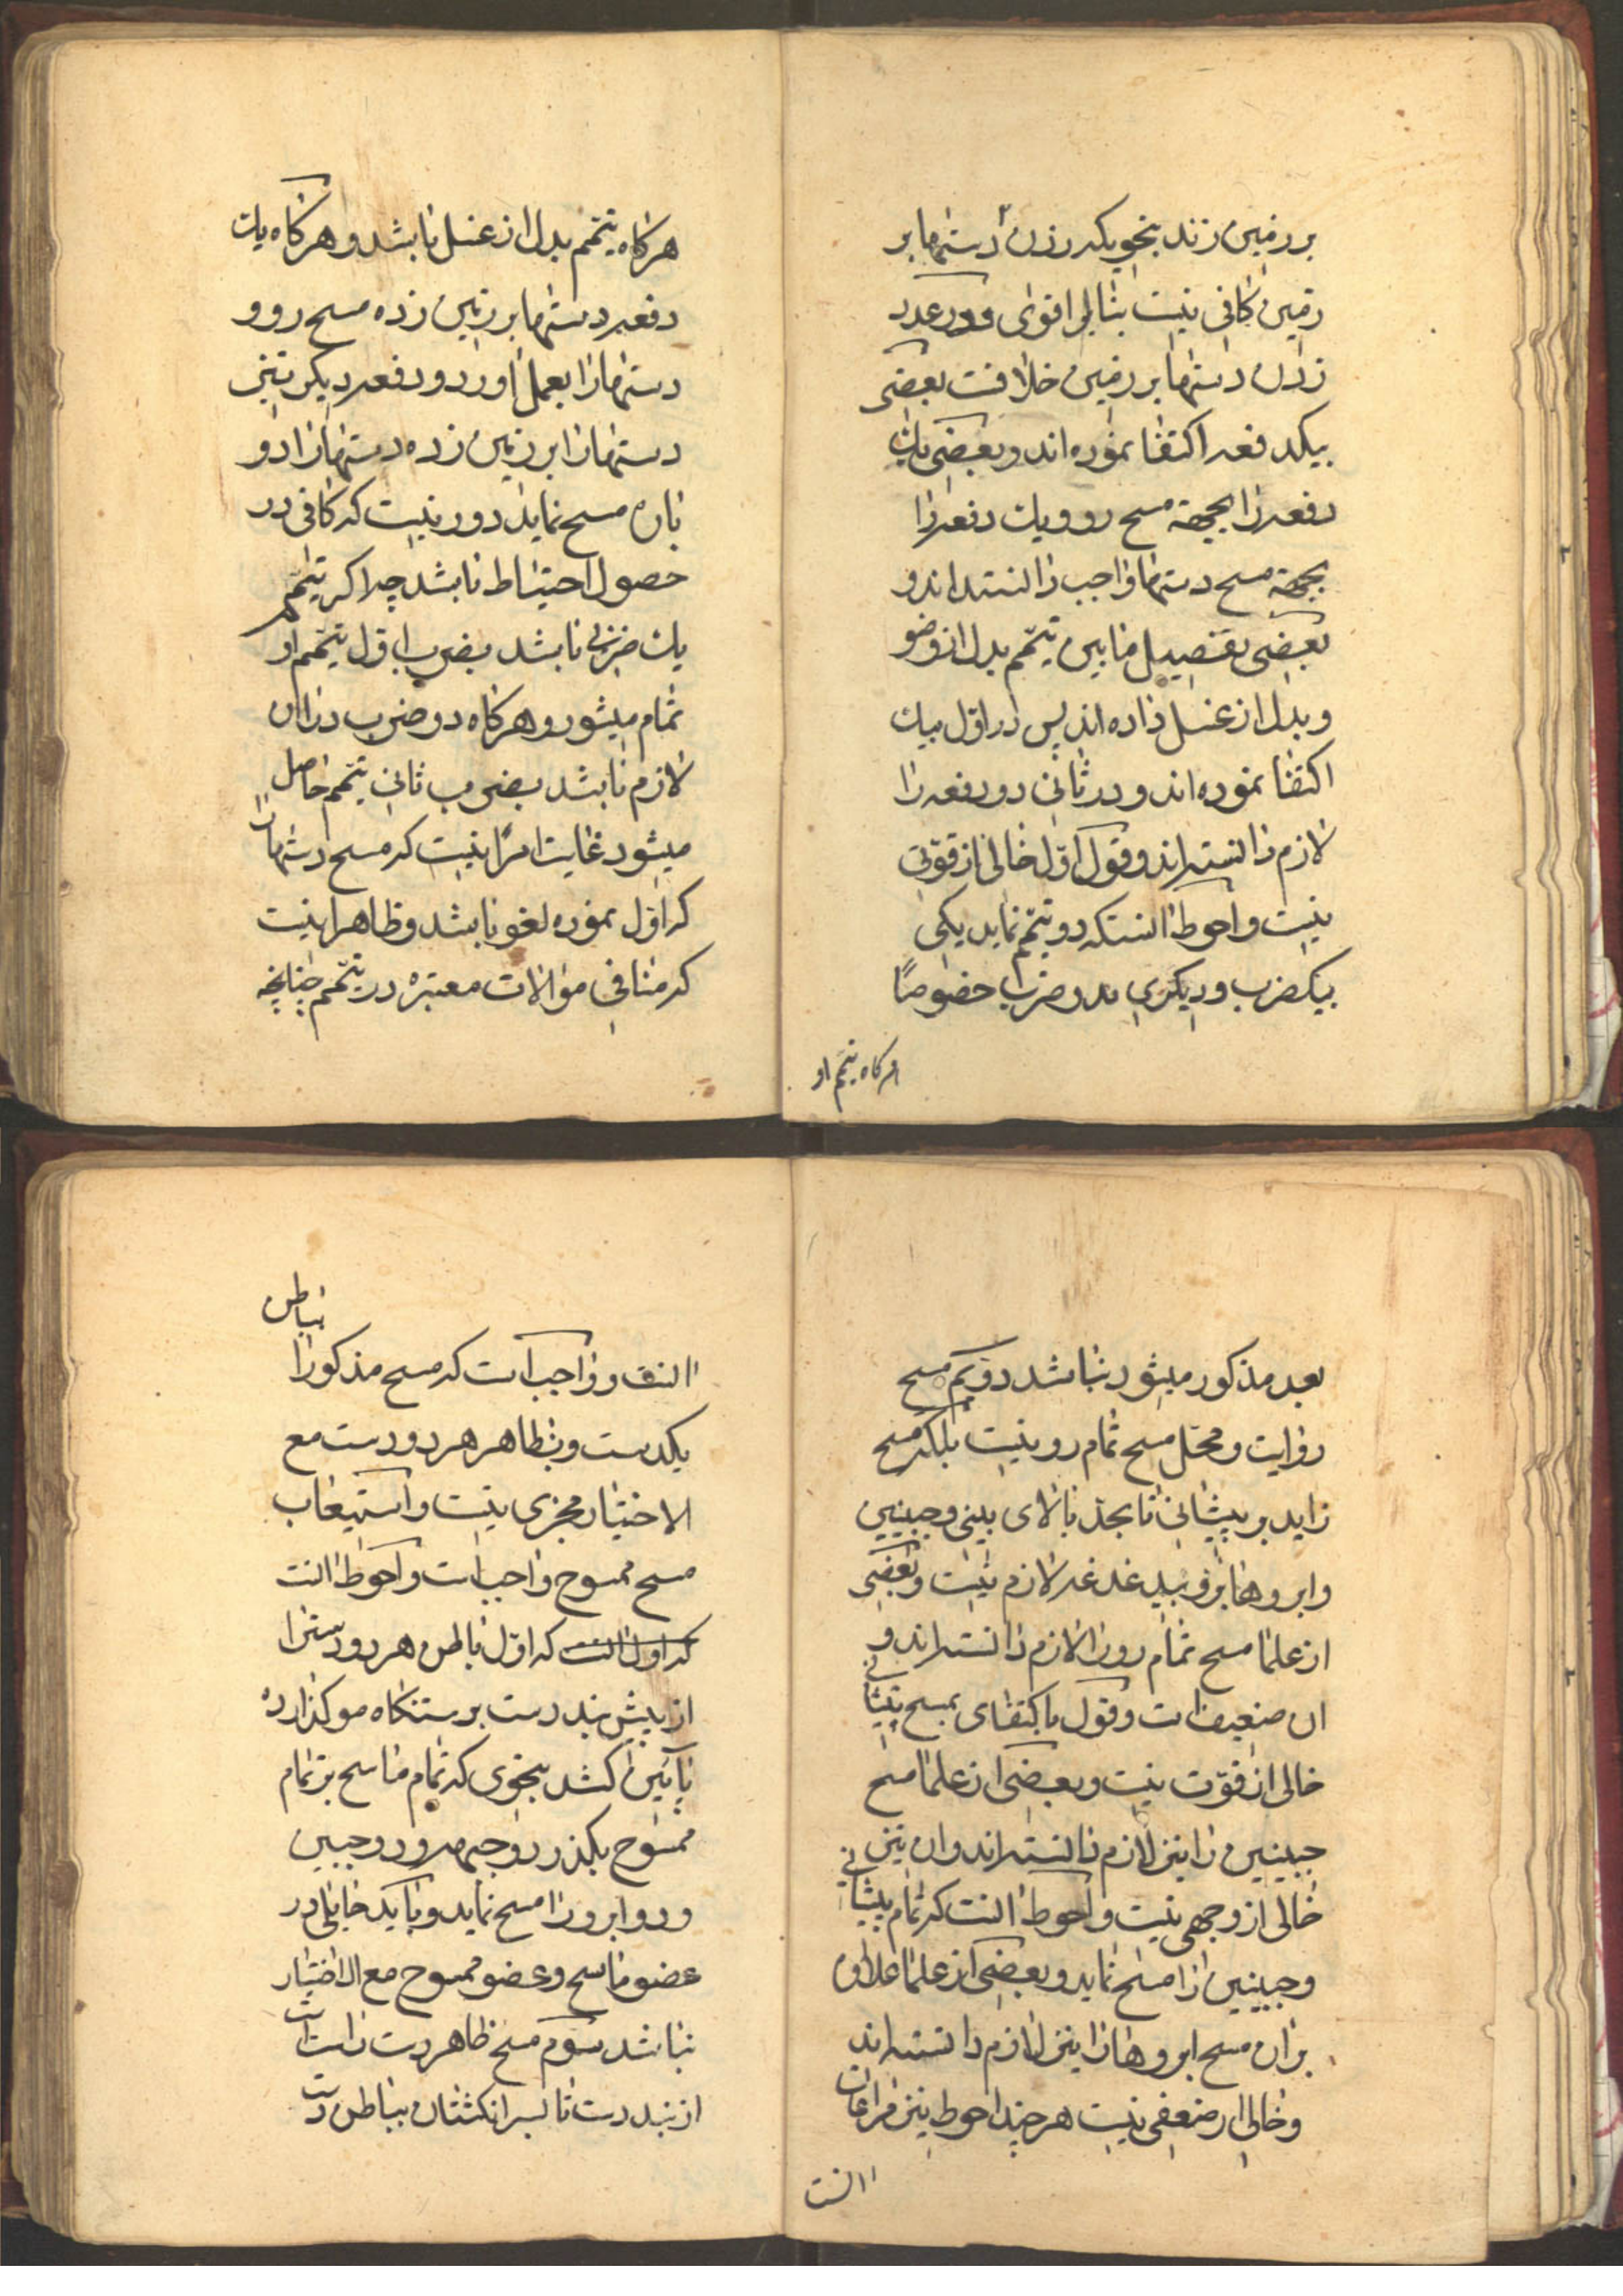 بر زمین زند بنحویکه زدن دستها بر
زمین کافی نیست بنابر اقوی و در عدد
زدن دستها بر زمین خلافست بعضی
بیکدفعه اکتفا نموده اند و بعضی یک
دفعه را بجهة مسح رو و یک دفعه را
بجهة مسح دستها واجب دانسته اند و
بعضی تفصیل مابین تیمّم بدل از وضو
و بدل از غسل داده اند پس در اوّل بیک
اکتفا نموده اند و در ثانی دو دفعه را
لازم دانسته اند و قول اوّل خالی از قوّتی
نیست و احوط انستکه دو تیمّم نماید یکی
بیکضرب و دیگری بدو ضرب خصوصًا
هرگاه تیمّم او
هرگاه تیمّم بدل از غسل باشد و هرگاه یک
دفعه دستها بر زمین زده مسح رو و
دستها را بعمل اورد و دفعه دیگر نیز
دستها را بر زمین زده دستها را دو
باره مسح نماید دور نیست که کافی در
حصول احتیاط باشد چرا که تیمّم
یک ضربی باشد بضرب اوّل تیمّم او
تمام میشود و هرگاه دو ضرب در ان
لازم باشد بضرب ثانی تیمّم حاصل
میشود غایت امر اینست که مسح دستها را
که اوّل نموده لغو باشد و ظاهر اینست
که منافی موالات معتبره در تیمّم چنانچه
بعد مذکور میشود نباشد دویّم مسح
روایت و محلّ مسح تمام رو نیست بلکه مسح
زاید بر پیشانی تا بحدّ بالای بینی و جبینین
و ابروها بر فوید غدغه لازم نیست و بعضی
از علما مسح تمام رو را لازم دانسته اند و
ان ضعیف است و قول باکتفای بمسح پیشانی
خالی از قوّت نیست و بعضی از علما مسح
جبینین را نیز لازم دانسته اند و ان نیز
خالی از وجهی نیست و احوط انست که تمام پیشانی
و جبینین را مسح نماید و بعضی از علما علاوه
بر ان مسح ابروها را نیز لازم دانسته اند
و خالی از ضعفی نیست هر چند احوط نیز مراعات
انست
انست و واجب است که مسح مذکور را بباطن
یکدست و بظاهر هر دو دست مع
الاختیار مجزی نیست و استیعاب
مسح ممسوح واجب است و احوط انست
که اول انست که اوّل باطن هر دو دست را
از پیش بند دست بر رستنگاه مو گذارده
پائین کشد بنحوی که تمام ماسح بر تمام
ممسوح بگذرد و جبهه و دو جبین
و دو ابرو را مسح نماید و باید حایلی در
عضو ماسح و عضو ممسوح مع الاختیار
نباشد سوّم مسح ظاهر دست راست است
از بند دست تا سر انگشتان بباطن دست